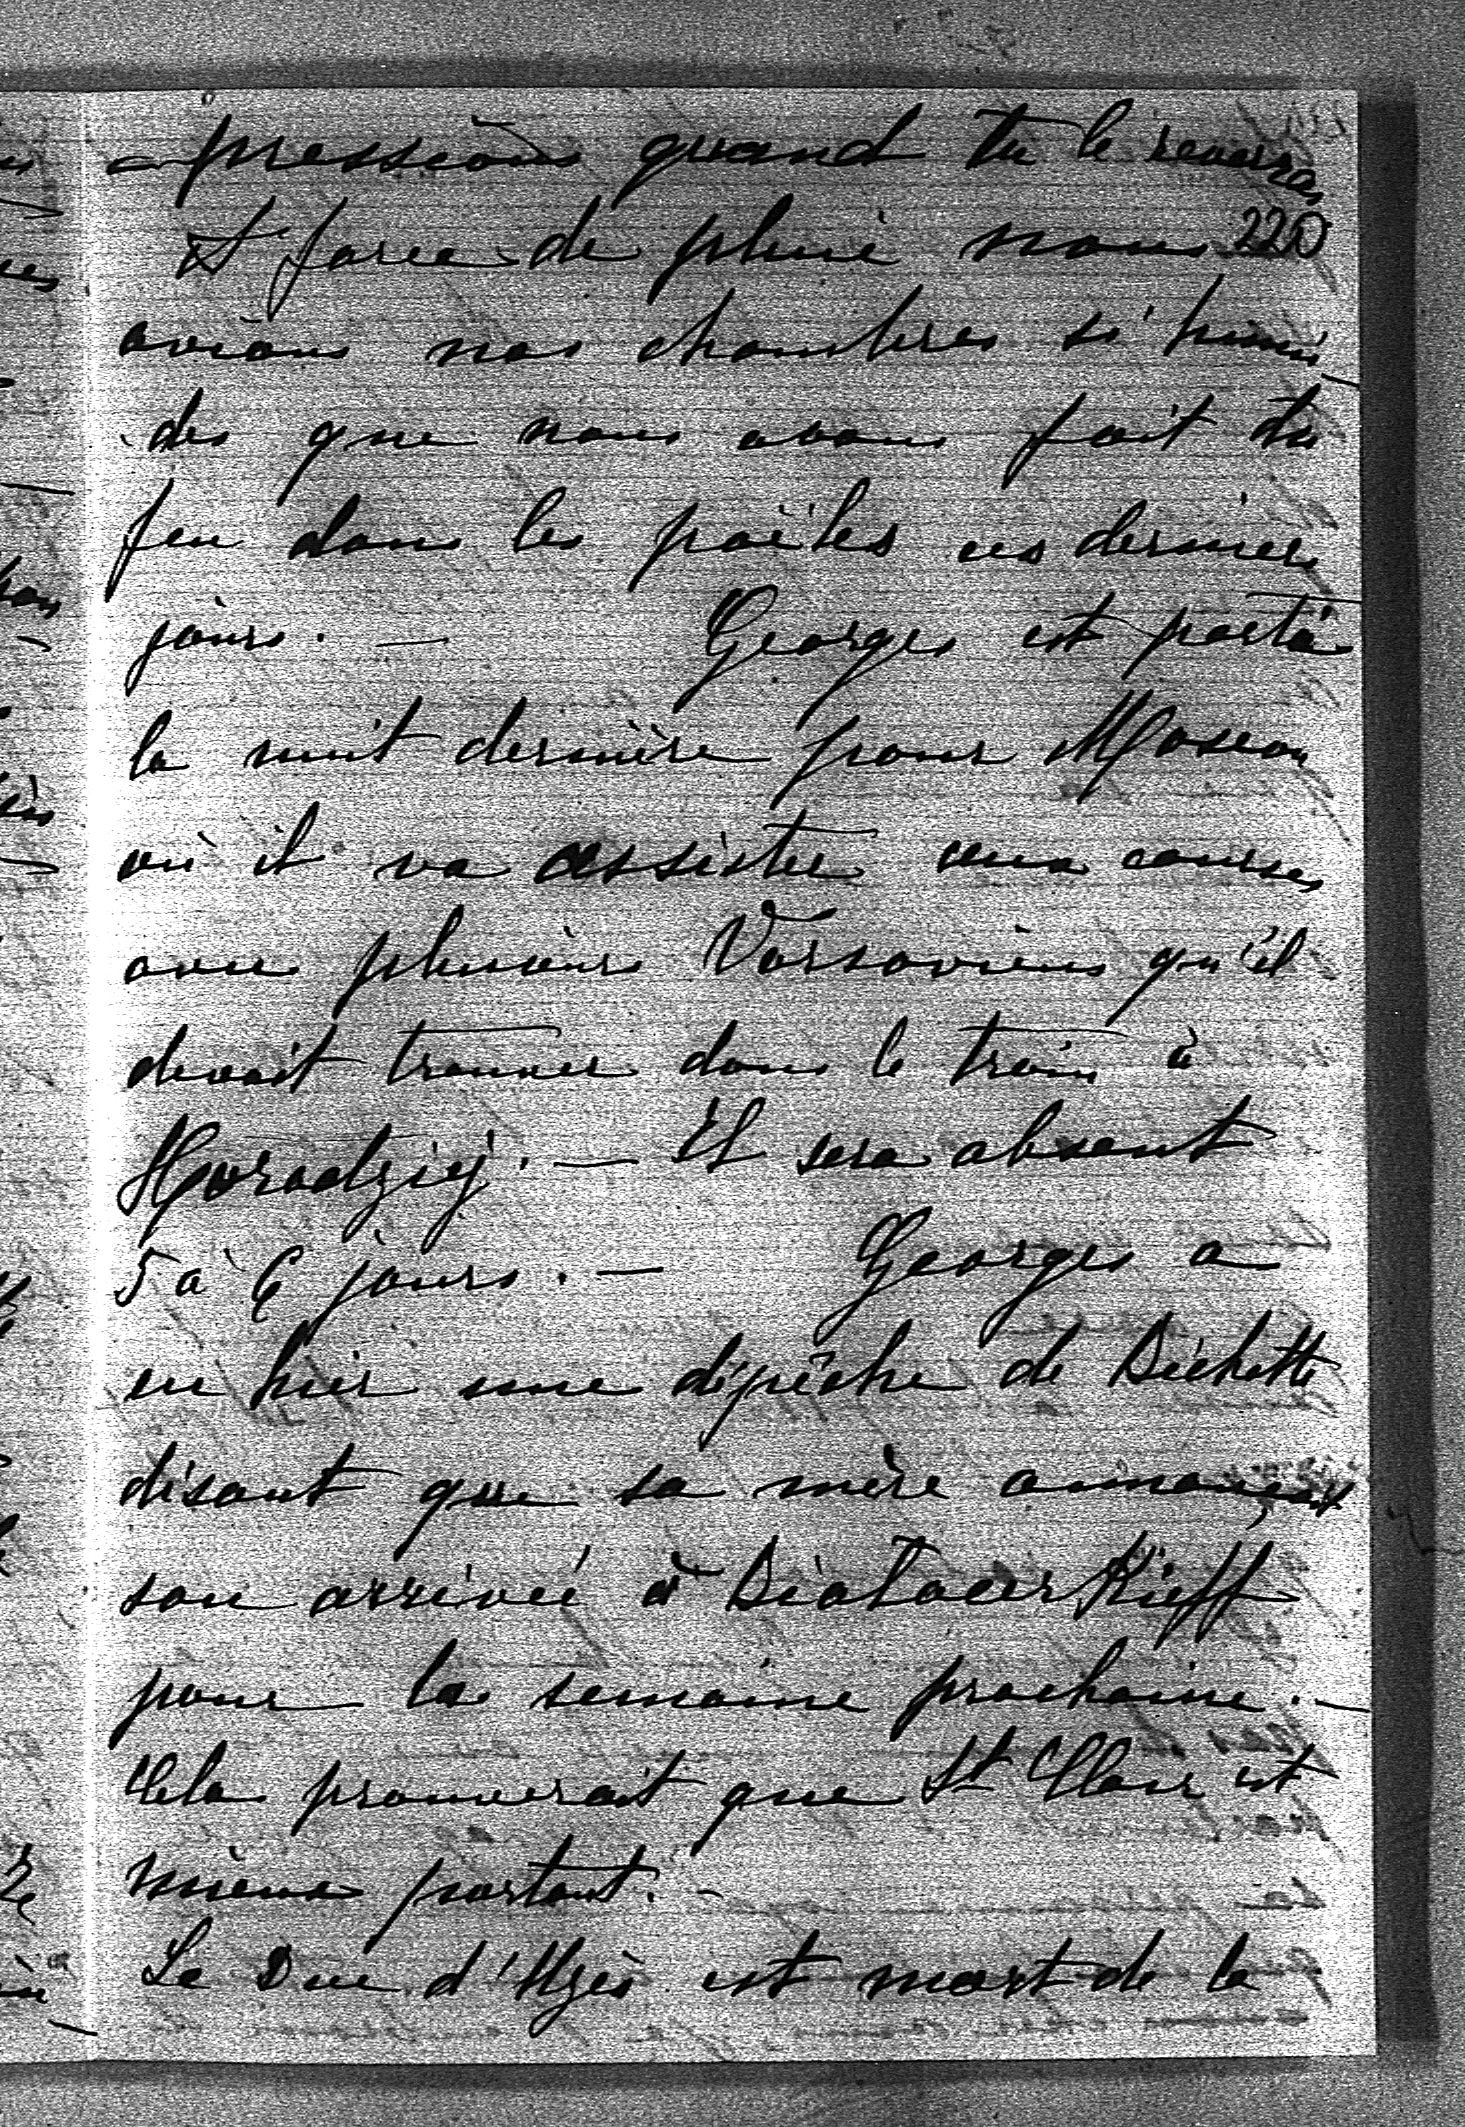 pressions quand tu le reverras
220
A force de pluie nous
avions nos chambres si humi-
des que nous avons fait du
feu dans les poëles ces derniers
jours. — Georges est parti
la nuit dernière pour Moscou
où il va assister aux courses
avec plusieurs Varsoviens qu'il
devait trouver dans le train à
Horodziej. — Il sera absent
5 à 6 jours. — Georges a
eu hier une dépêche de Bichette
disant que sa mère annonçait
son arrivée à Biatacerkieff
pour la semaine prochaine. —
Cela prouverait que St Clair est
mieux portant. -
Le Duc d'Uzès est mort de la